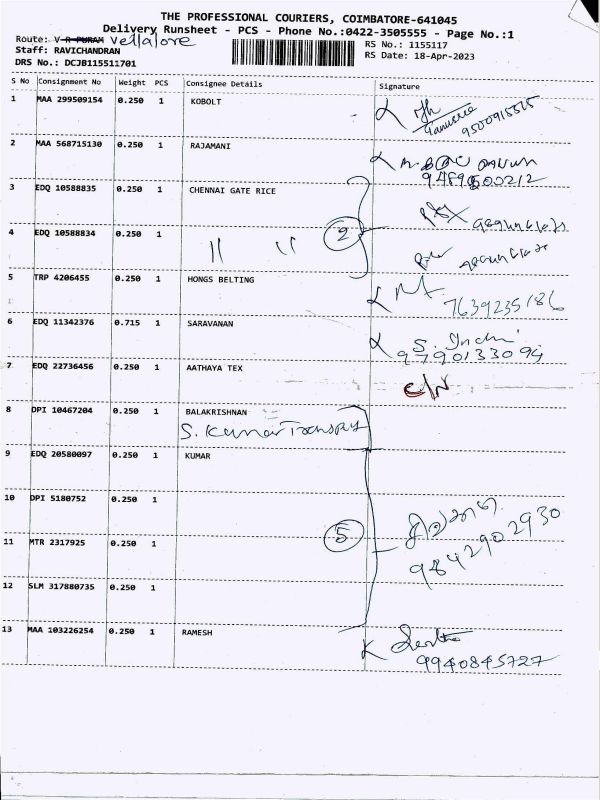 THE PROFESSIONAL COURIERS, COIMBATORE-641045
Delivery Runsheet - PCS - Phone No.:0422-3505555 - Page No.:1
Route: V R PURAM Vellalore
RS No.: 1155117
Staff: RAVICHANDRAN
RS Date: 18-Apr-2023
DRS No.: DCJB115511701
S No Consignment No Weight PCS Consignee Details Signature
1 MAA 299509154 0.250 1 KOBOLT
2 MAA 568715130 0.250 1 RAJAMANI
3 EDQ 10588835 0.250 1 CHENNAI GATE RICE
4 EDQ 10588834 0.250 1 〃 〃 2
5 TRP 4206455 0.250 1 HONGS BELTING
7639235186
6 EDQ 11342376 0.715 1 SARAVANAN
9790133094
7 EDQ 22736456 0.250 1 AATHAYA TEX C/N
8 DPI 10467204 0.250 1 BALAKRISHNAN
S. Kumar
9 EDQ 20580097 0.250 1 KUMAR
10 DPI 5180752 0.250 1
11 MTR 2317925 0.250 1 5
9842902930
12 SLM 317880735 0.250 1
13 MAA 103226254 0.250 1 RAMESH
9940845727